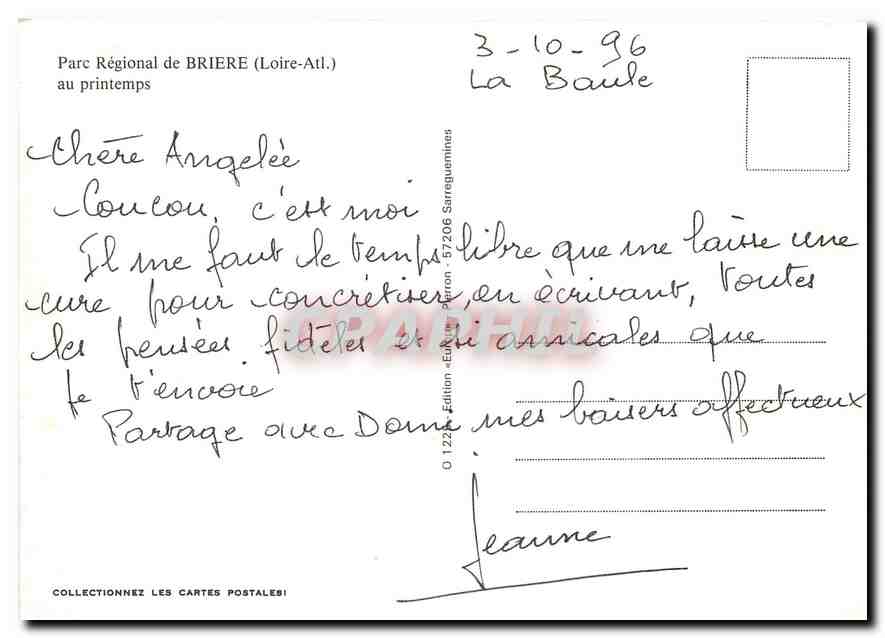 Parc Régional de BRIERE (Loire-Atl.)
au printemps
3-10-96
La Baule
Chère Angelée
Coucou, c'est moi
Il me faut le temps libre que me laisse une
cure pour concrétiser, en écrivant, toutes
les pensées fidèles et si amicales que
je t'envoie.
Partage avec Domi mes baisers affectueux
Jeanne
Edition «Europe» Pierron - 57206 Sarreguemines
COLLECTIONNEZ LES CARTES POSTALES!